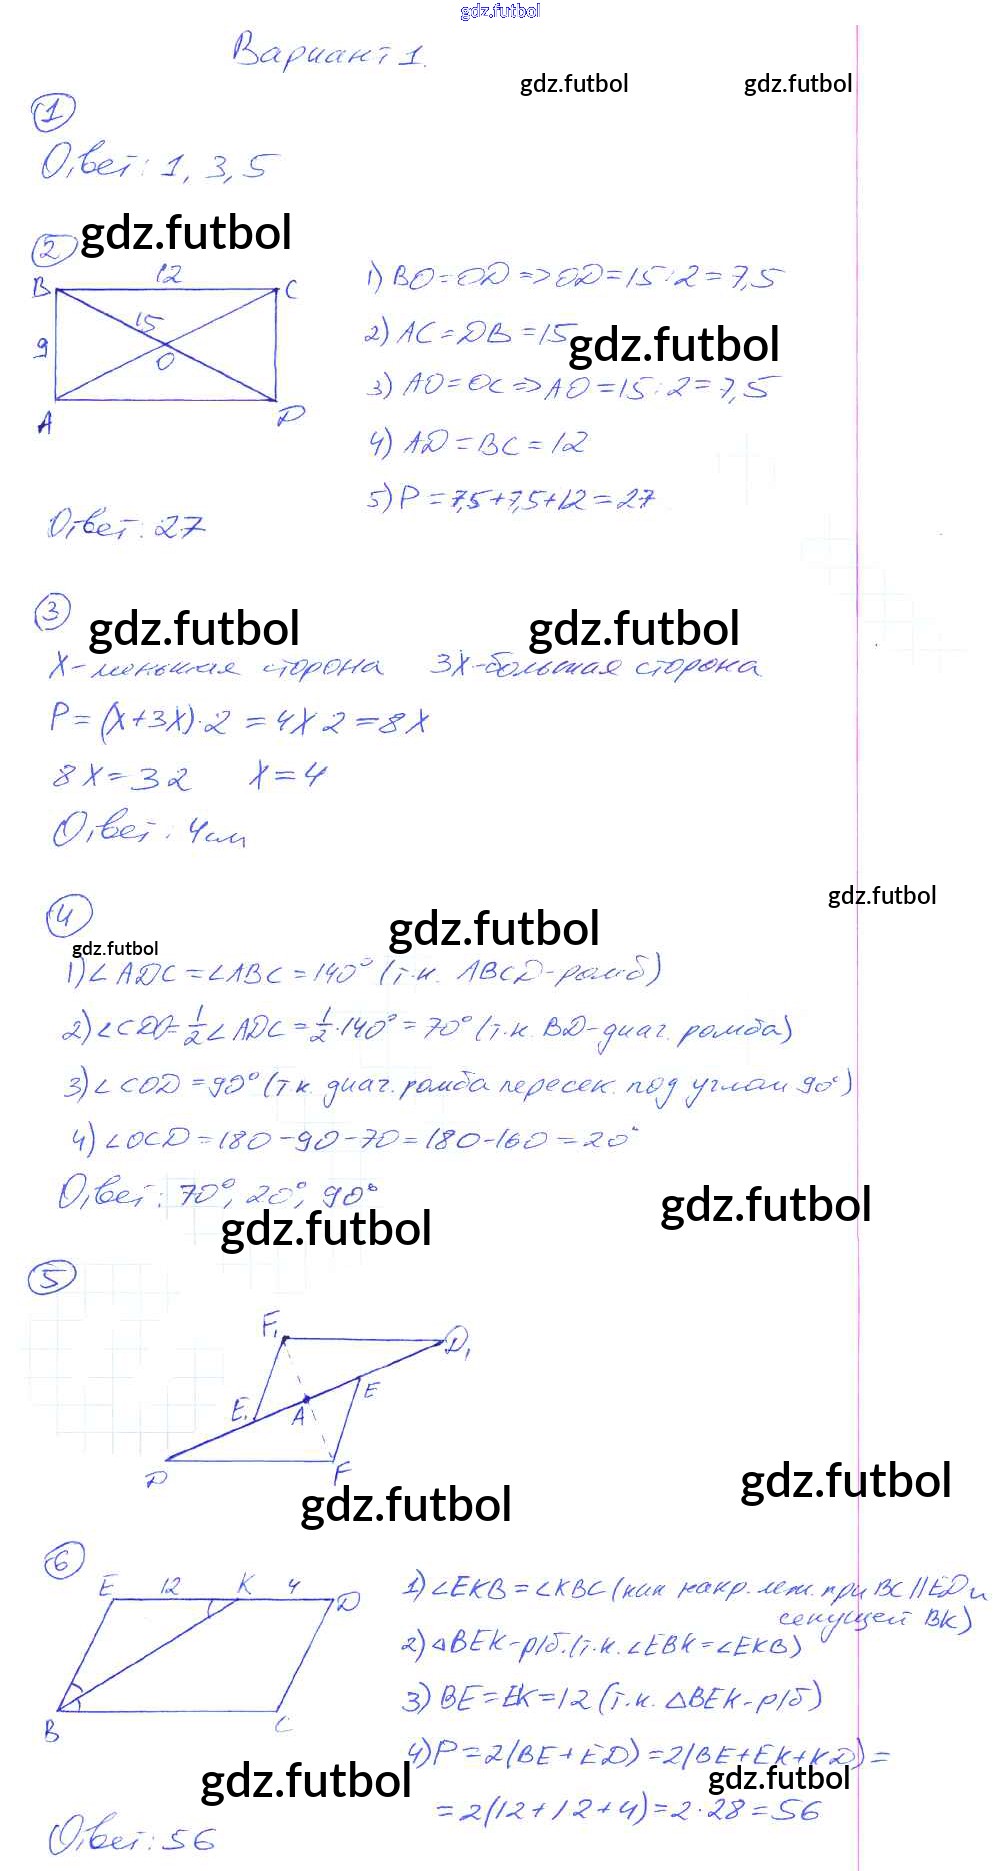 gdz.futbol
Вариант 1.
gdz.futbol gdz.futbol
1
Ответ: 1, 3, 5
2 gdz.futbol
B 12 C
15
9
O
A D
1) BO=OD => OD=15:2=7,5
2) AC=DB=15 gdz.futbol
3) AO=OC => AO=15:2=7,5
4) AD=BC=12
5) P=7,5+7,5+12=27
Ответ: 27
3
gdz.futbol gdz.futbol
X-меньшая сторона 3X-большая сторона
P=(X+3X)·2=4X2=8X
8X=32 X=4
Ответ: 4см
gdz.futbol
4
gdz.futbol
gdz.futbol
1) ∠ADC=∠ABC=140° (т.к. ABCD-ромб)
2) ∠CDO=1/2∠ADC=1/2·140°=70° (т.к. BD-диаг. ромба)
3) ∠COD=90° (т.к. диаг. ромба пересек. под углом 90°)
4) ∠OCD=180-90-70=180-160=20°
Ответ: 70°, 20°, 90°
gdz.futbol gdz.futbol
5
F₁ D₁
E
E₁ A
D F
gdz.futbol gdz.futbol
6
E 12 K 4 D
B C
1) ∠EKB=∠KBC (как накр. леж. при BC||ED и
секущей BK)
2) ΔBEK-р/б. (т.к. ∠EBK=∠EKB)
3) BE=EK=12 (т.к. ΔBEK-р/б)
4) P=2(BE+ED)=2(BE+EK+KD)=
gdz.futbol gdz.futbol
=2(12+12+4)=2·28=56
Ответ: 56